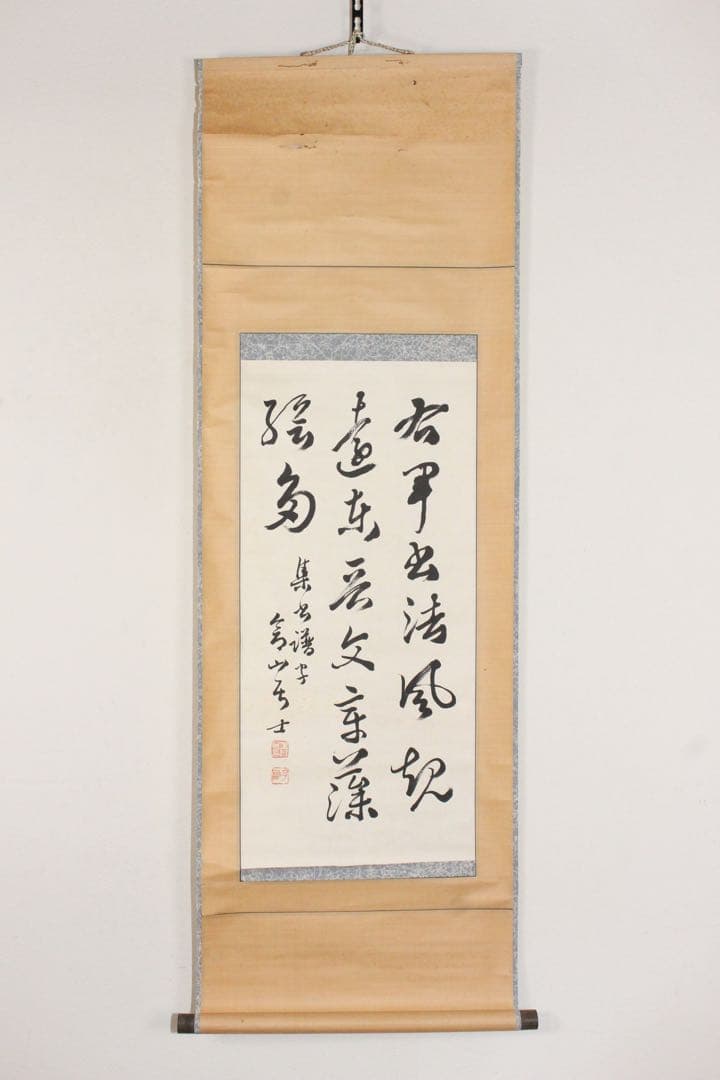 右軍書法風規
遠東晉文章藻
繪多
集書譜字
山居士